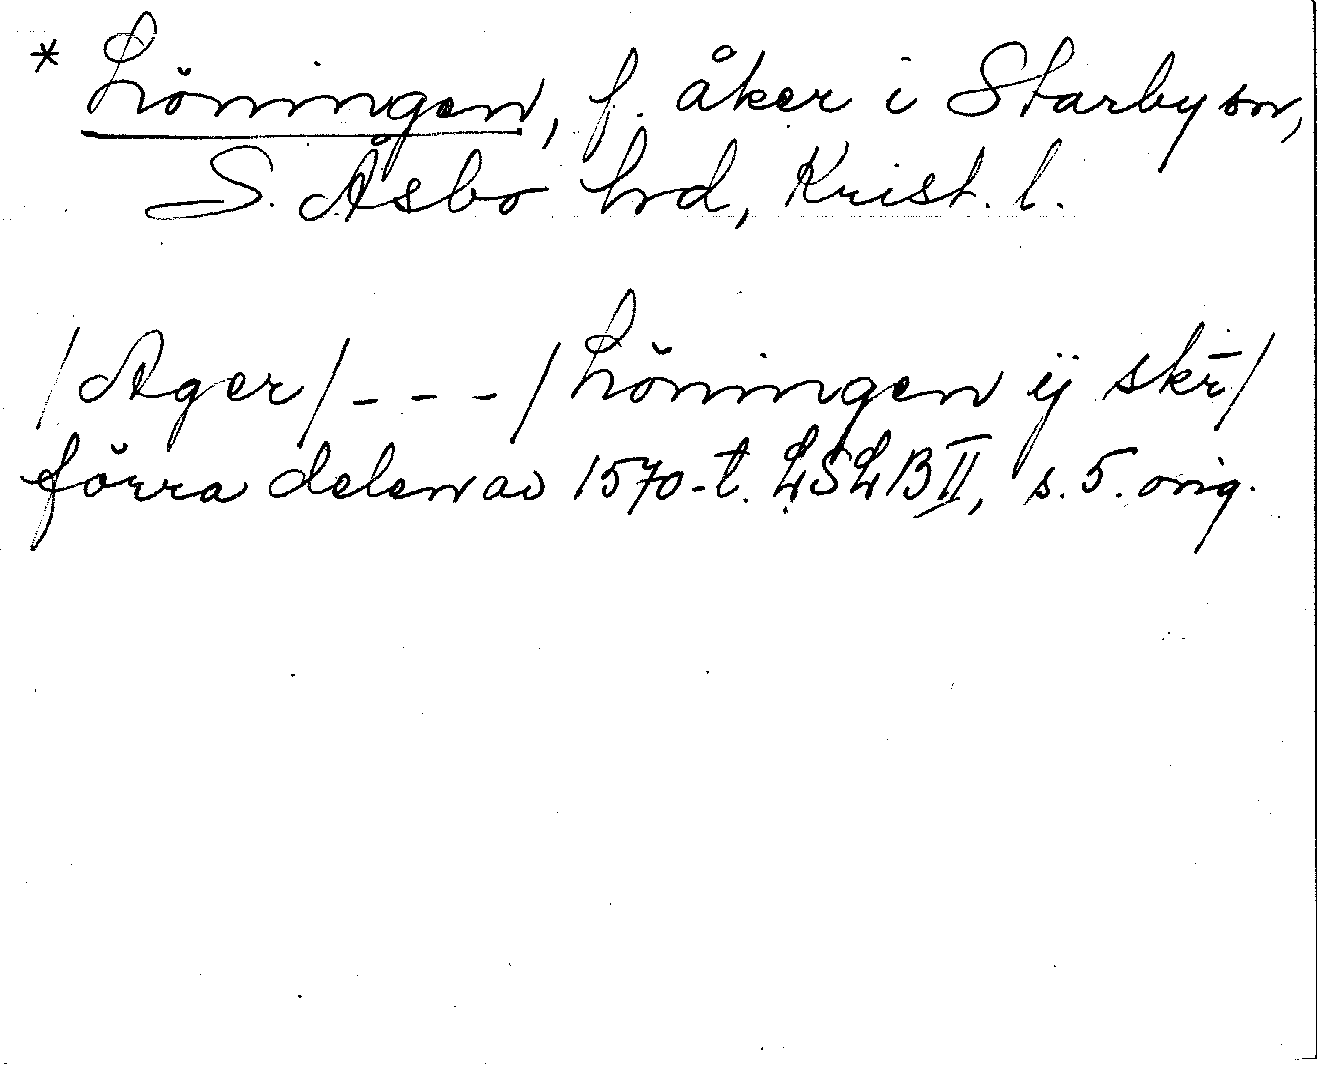 * Löningen, f. åker i Starby sn,
S. Åsbo hrd, Krist. l.
/Ager/ - - - /Löningen ij skr̄/
förra delen av 1570-t. LSLB II, s. 5. orig.